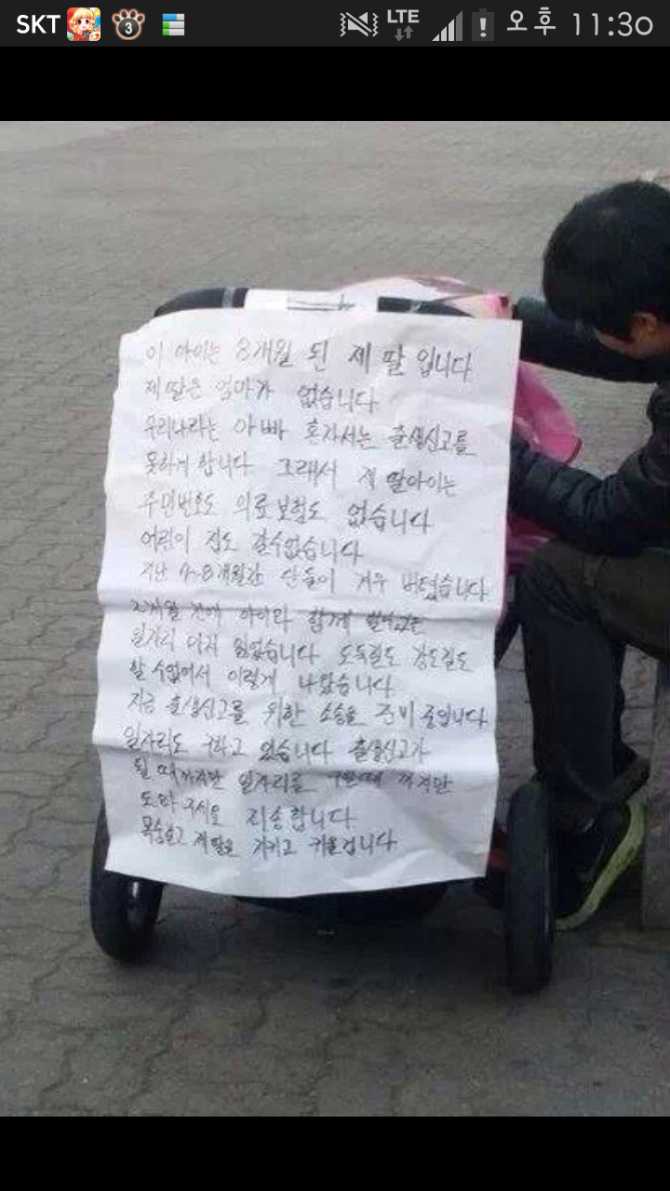 SKT 3 LTE 오후 11:30
이 아이는 8개월 된 제 딸 입니다
제 딸은 엄마가 없습니다
우리나라는 아빠 혼자서는 출생신고를
못하게 합니다 그래서 제 딸아이는
주민번호도 의료보험도 없습니다
어린이 집도 갈수없습니다
지난 7-8개월간 단둘이 겨우 버텼습니다
전에 아이와 함께
일거리 마저 잃었습니다 도둑질도 강도질도
할 수없어서 이렇게 나왔습니다
지금 출생신고를 위한 소송을 준비 중입니다
일자리도 구하고 있습니다 출생신고가
될 때까지만 일자리를 구할때 까지만
도와 주시요 죄송합니다
목숨걸고 제 딸을 지키고 키울겁니다